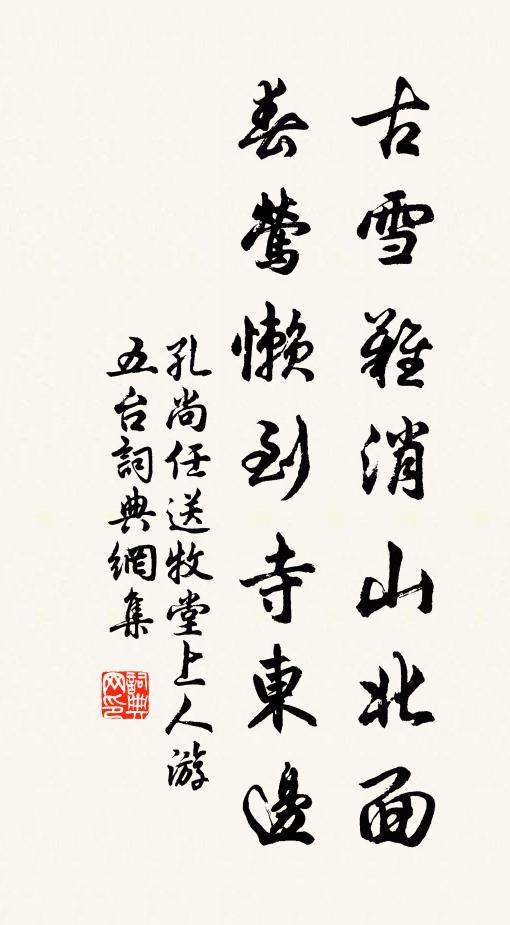 古雪難消山北面
春鶯懶到寺東邊
孔尚任送牧堂上人游
五台詞典網集
詞典
网印